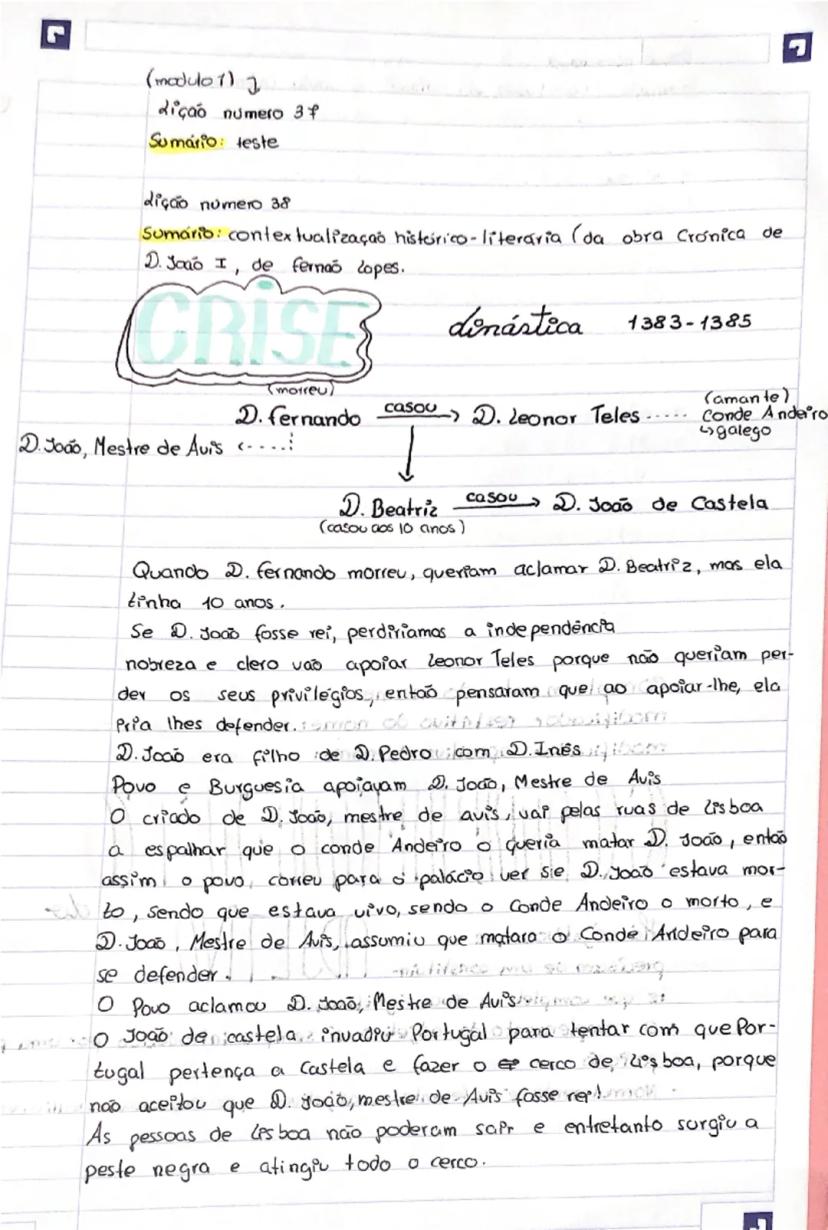 (modulo 1)
lição numero 37
Sumário: teste
lição numero 38
Sumário: contextualização histórico-literária (da obra Crónica de
D. João I, de fernão lopes.
CRISE dinástica 1383-1385
(morreu)
D. fernando casou D. Leonor Teles ..... (amante) Conde Andeiro
galego
D. João, Mestre de Avis
D. Beatriz casou D. João de Castela
(casou aos 10 anos)
Quando D. fernando morreu, queriam aclamar D. Beatriz, mas ela
tinha 10 anos.
Se D. João fosse rei, perdiriamos a independência
nobreza e clero vão apoiar leonor Teles porque não queriam per-
der os seus privilégios, então pensaram que ao apoiar-lhe, ela
iria lhes defender.
D. João era filho de D. Pedro com D. Inês
Povo e Burguesia apoiavam D. João, Mestre de Avis
O criado de D. João, mestre de avis, vai pelas ruas de lisboa
a espalhar que o conde Andeiro o queria matar D. João, então
assim o povo, correu para o palácio ver se D. João estava mor-
to, sendo que estava vivo, sendo o Conde Andeiro o morto, e
D. João, Mestre de Avis, assumiu que matara o Conde Andeiro para
se defender.
O Povo aclamou D. João, Mestre de Avis
O João de castela invadiu Portugal para tentar com que Por-
tugal pertença a Castela e fazer o cerco de lisboa, porque
não aceitou que D. João, mestre de Avis fosse rei!
As pessoas de lisboa não poderam sair e entretanto surgiu a
peste negra e atingiu todo o cerco.